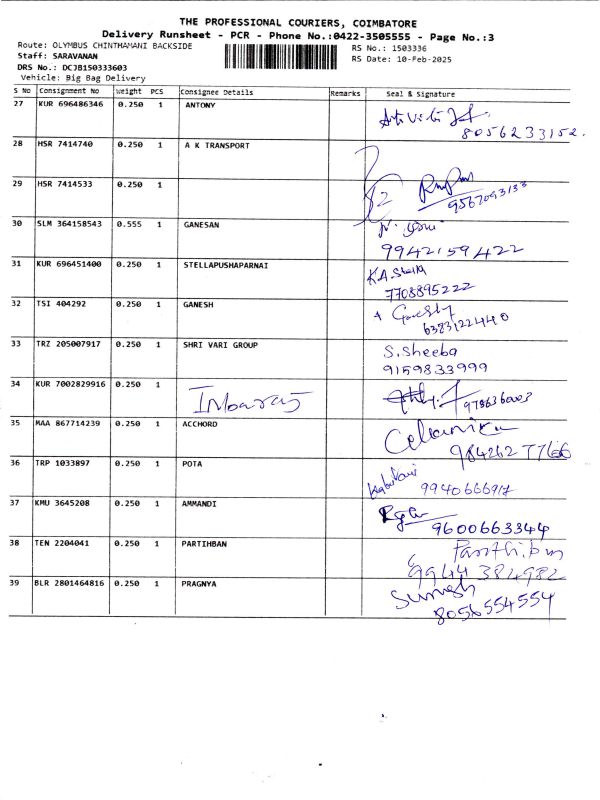 THE PROFESSIONAL COURIERS, COIMBATORE
Delivery Runsheet - PCR - Phone No.:0422-3505555 - Page No.:3
Route: OLYMBUS CHINTHAMANI BACKSIDE
RS No.: 1503336
Staff: SARAVANAN
RS Date: 10-Feb-2025
DRS No.: DCJB150333603
Vehicle: Big Bag Delivery
S No Consignment No Weight PCS Consignee Details Remarks Seal & Signature
27 KUR 696486346 0.250 1 ANTONY
8056233152.
28 HSR 7414740 0.250 1 A K TRANSPORT
29 HSR 7414533 0.250 1
9567093133
30 SLM 364158543 0.555 1 GANESAN
9942159422
31 KUR 696451400 0.250 1 STELLAPUSHAPARNAI K.A.Stella
7708895222
32 TSI 404292 0.250 1 GANESH Ganesh
6383122440
33 TRZ 205007917 0.250 1 SHRI VARI GROUP S.Sheeba
9159833999
34 KUR 7002829916 0.250 1 Inbaraj
35 MAA 867714239 0.250 1 ACCHORD
984262 7766
36 TRP 1033897 0.250 1 POTA
9940666917
37 KMU 3645208 0.250 1 AMMANDI
9600663344
38 TEN 2204041 0.250 1 PARTIHBAN Parthibun
9944 384982
39 BLR 2801464816 0.250 1 PRAGNYA Sumesh
8056554554